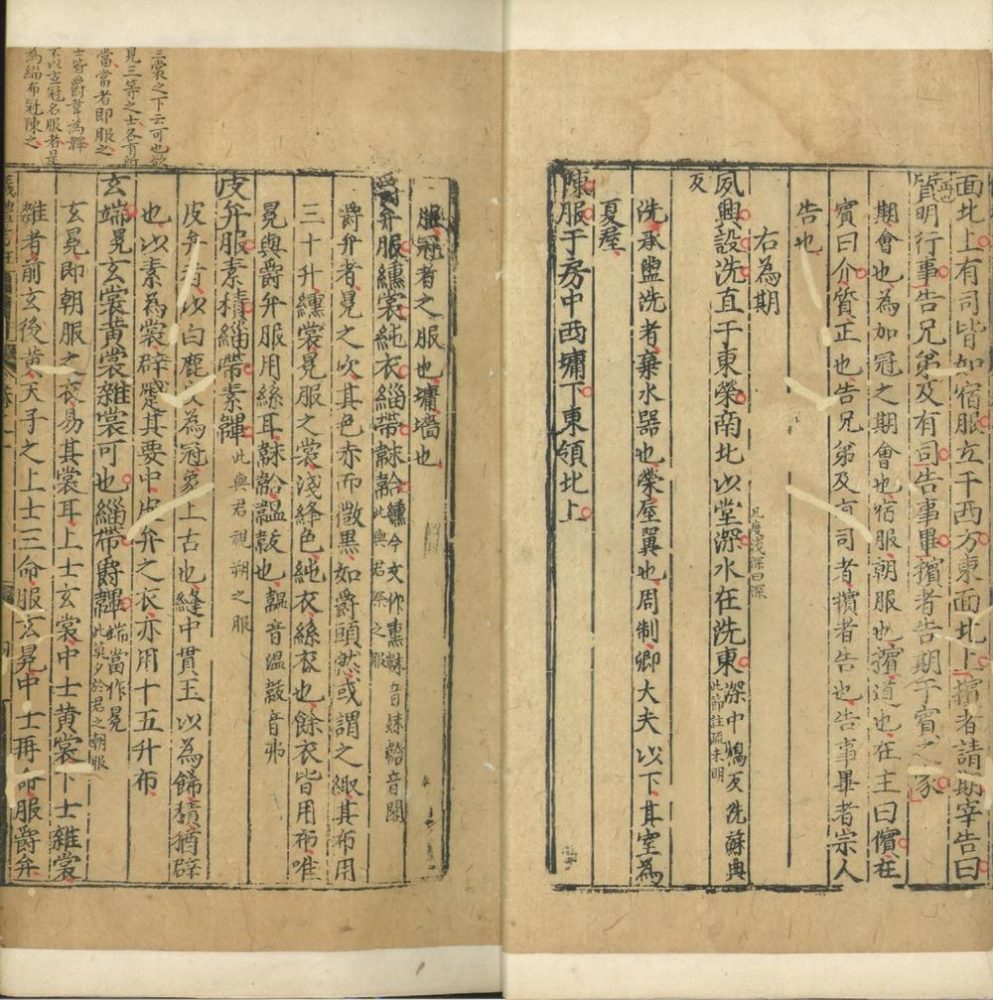 面北上有司皆如宿服立于西方東面北上擯者請期宰告曰
質明行事告兄弟及有司告事畢擯者告期于賓之家
期會也為加冠之期會也宿服朝服也擯道也在主曰儐在
賓曰介質正也告兄弟及有司者擯者告也告事畢者宗人
告也
右為期
夙興設洗直于東榮南北以堂深水在洗東深中鴆反洗蘇典
此節註疏未明
反
洗承盥洗者棄水器也榮屋翼也周制卿大夫以下其室為
夏屋
陳服于房中西墉下東領北上
服冠者之服也墉墻也
爵弁服纁裳純衣緇帶韎韐纁今文作熏韎音妹韐音閤
此與君祭之服
爵弁者冕之次其色赤而微黒如爵頭然或謂之緅其布用
三十升纁裳冕服之裳淺絳色純衣絲衣也餘衣皆用布唯
冕與爵弁服用絲耳韎韐韞韍也韞音溫韍音弗
皮弁服素積緇帶素韠此與君視朔之服
皮弁者以白鹿皮為冠象上古也縫中貫玉以為飾積猶辟
也以素為裳辟蹙其要中皮弁之衣亦用十五升布
玄端冕玄裳黄裳雜裳可也緇帶爵韠端當作冕
此莫夕於君之朝服
玄冕即朝服之衣易其裳耳上士玄裳中士黄裳下士雜裳
雜者前玄後黄天子之上士三命服玄冕中士再命服爵弁
三裳之下云可也欲
見三等之士各有所
當當者即服之
士皆爵韋為韠
不以玄冠名服者是
為緇布冠陳之